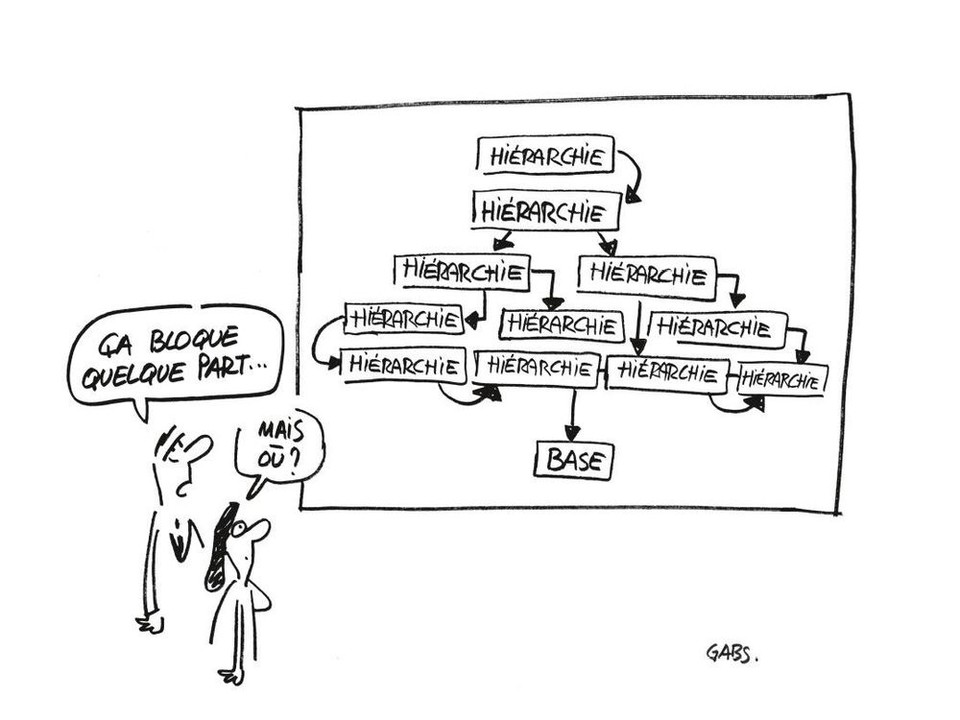 HIÉRARCHIE
HIÉRARCHIE
HIÉRARCHIE
HIÉRARCHIE
HIÉRARCHIE
HIÉRARCHIE
HIÉRARCHIE
HIÉRARCHIE
HIÉRARCHIE
HIÉRARCHIE
HIÉRARCHIE
BASE
ÇA BLOQUE
QUELQUE PART...
MAIS
OÙ?
GABS.